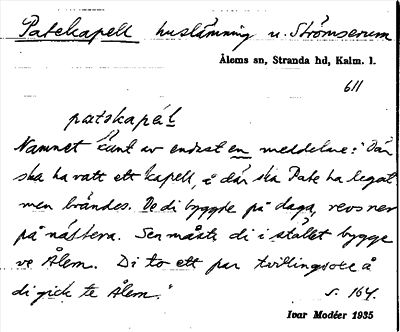 Patekapell huslämning u. Strömserum
Ålems sn, Stranda hd, Kalm. l.
611
patskapäl
Namnet känt av endast en meddelare: "Där
ska ha vatt ett kapell, å där ska Pate ha legat
men brändes. De di byggde på daga, revs ner
på nättera. Sen måste di i stället bygge
ve Ålem. Di to ett par tvillingsote å
di gick te Ålem."
s. 164.
Ivar Modéer 1935